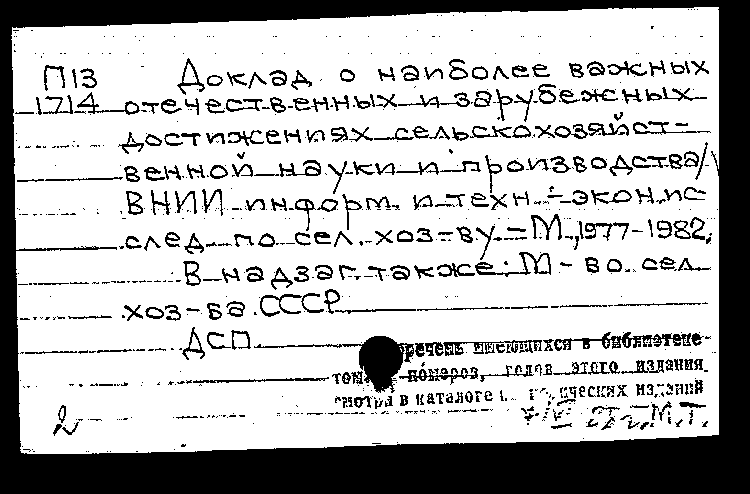 П13 Доклад о наиболее важных
1714 отечественных и зарубежных
достижениях сельскохозяйст-
венной науки и производства/
ВНИИ информ. и техн.-экон. ис-
след. по сел. хоз-ву.-М., 1977-1982.
В надзаг. также: М-во сел.
хоз-ва СССР
ДСП
речень имеющихся в библиотеке
томов, номеров, годов этого издания
смотри в каталоге ических изданий
2 М.Т.